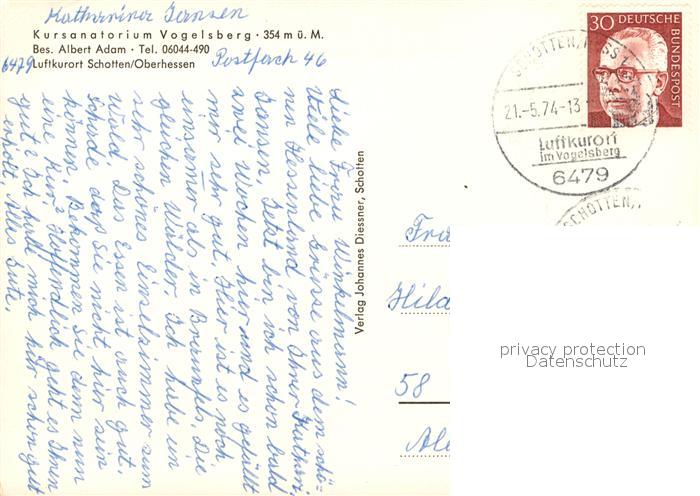 Katharina Jansen
Kursanatorium Vogelsberg · 354 m ü. M.
Bes. Albert Adam · Tel. 06044-490
6479 Luftkurort Schotten/Oberhessen
Postfach 46
Liebe Frau Winkelmann!
Viele liebe Grüsse aus dem schö-
nen Hessenland, von Ihrer Kathari.
Jansen. Jetzt bin ich schon bald
zwei Wochen hier und es gefällt
mir sehr gut. Hier ist es noch
einsamer als in Braunfels. Die
gleichen Wälder. Ich habe ein
sehr schönes Einzelzimmer zum
Wald. Das Essen ist auch gut.
Schade, dass Sie nicht hier sein
können. Bekommen Sie denn nun
eine Kur? Hoffendlich geht es Ihnen
gut? Ich hab mich hier schon gut
erholt. Alles Gute.
Verlag Johannes Diessner, Schotten
30 DEUTSCHE
BUNDESPOST
SCHOTTEN, HESS 1
21.-5.74-13
Luftkurort
im Vogelsberg
6479
SCHOTTEN,
Fra
Hild
58
Al
privacy protection
Datenschutz